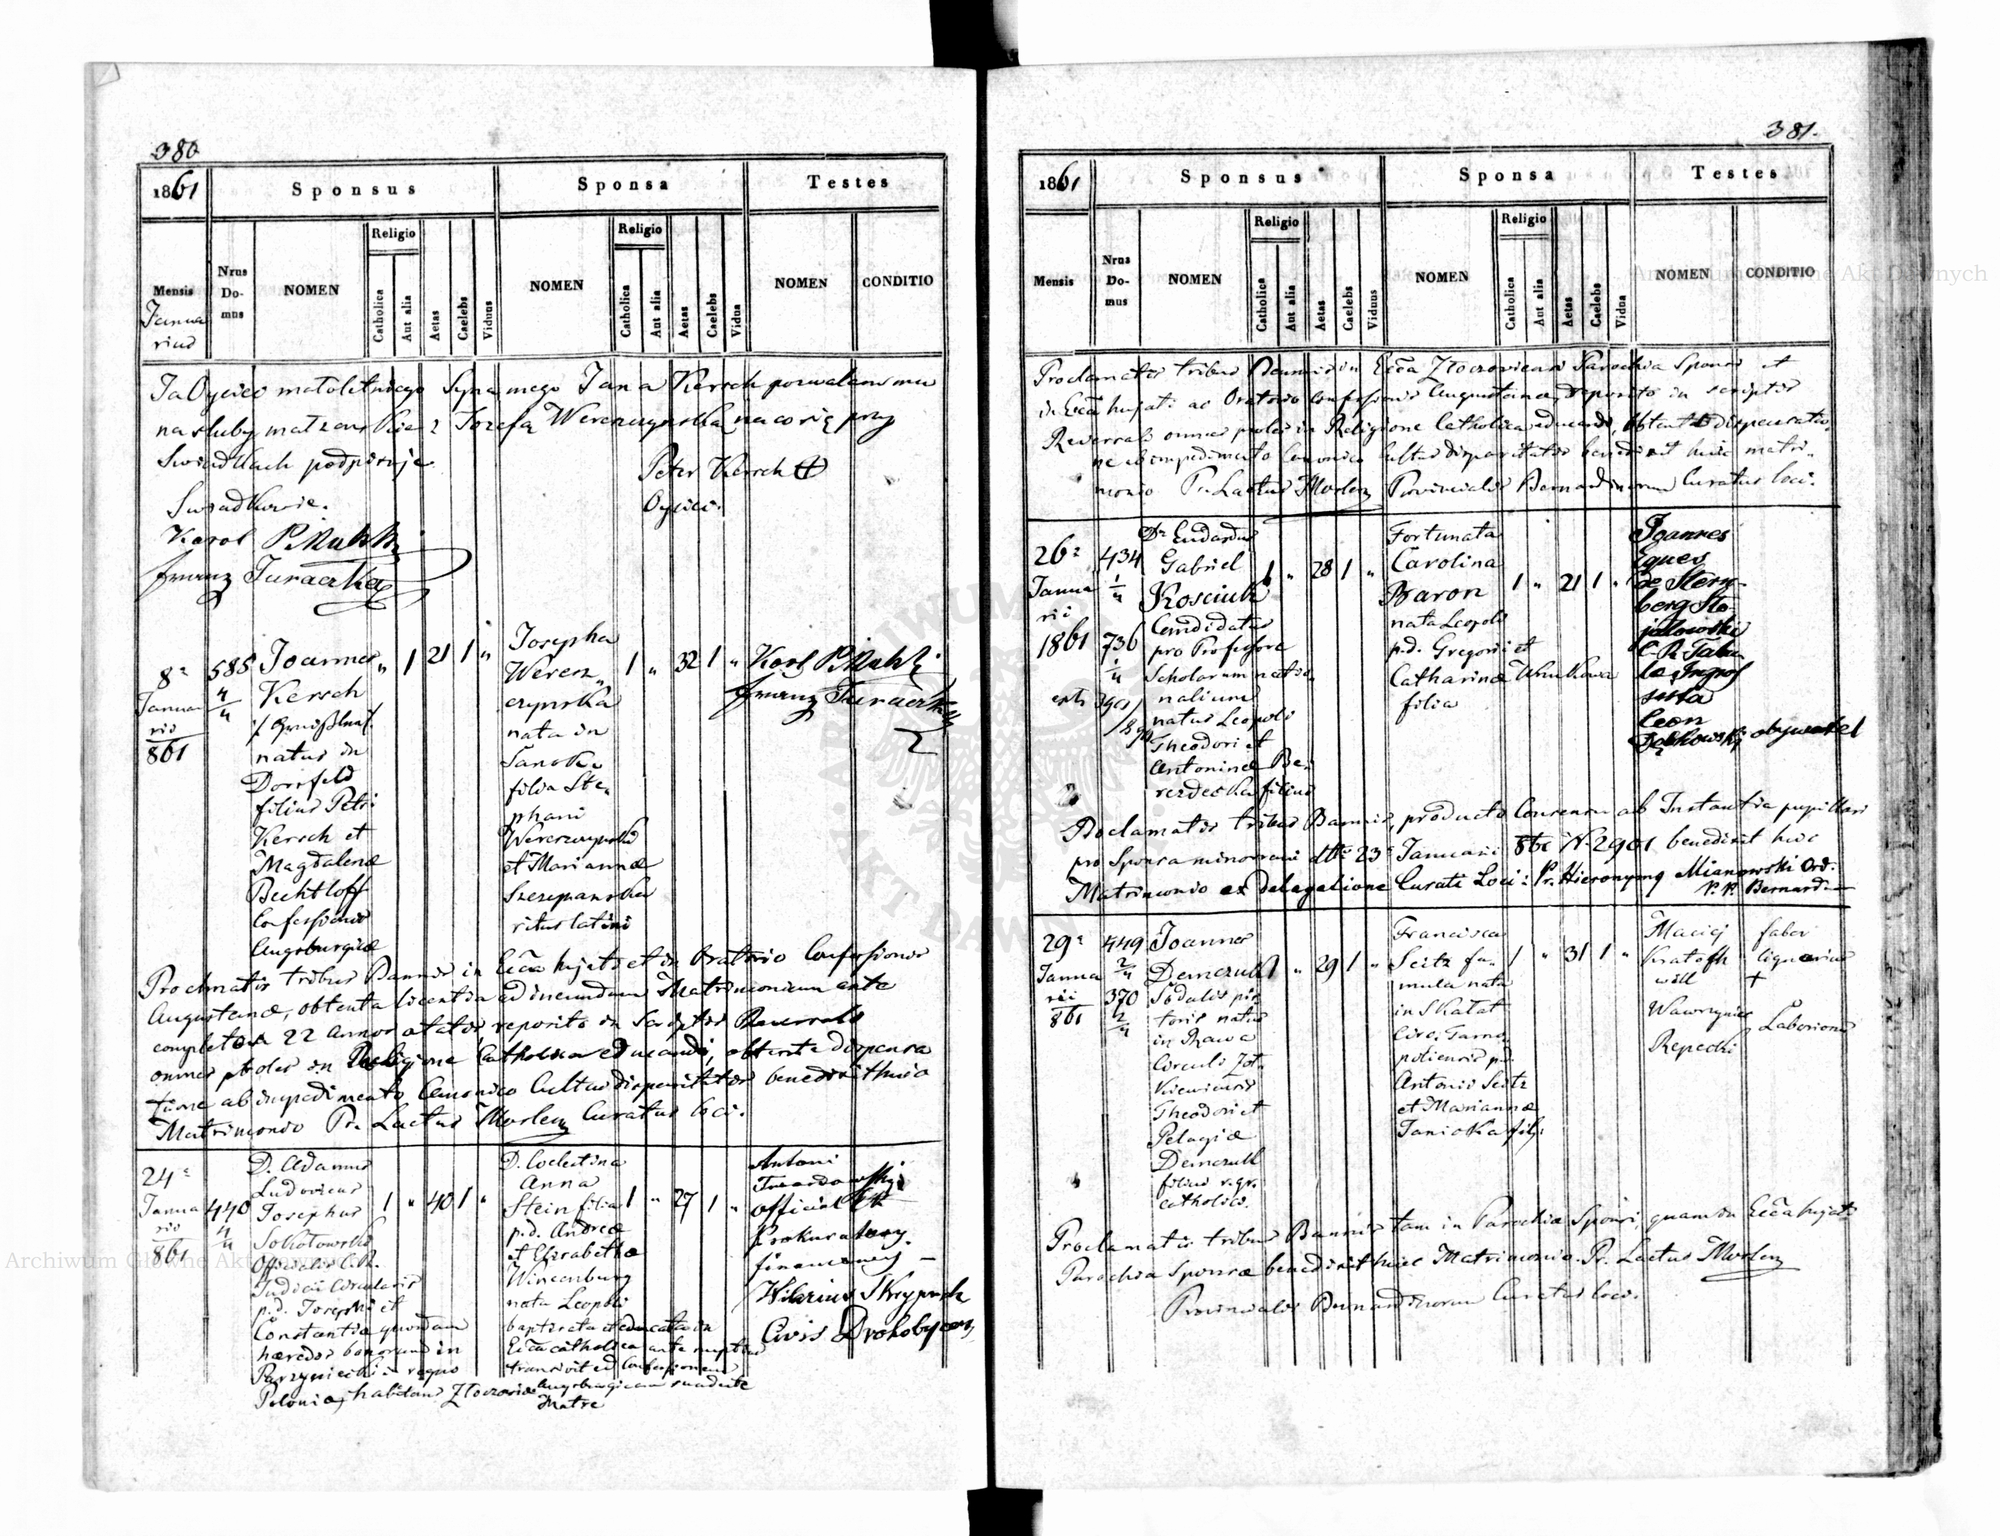 380
1861
Sponsus
Sponsa
Testes
Mensis
Nrus Do-mus
NOMEN
Religio
Catholica
Aut alia
Aetas
Caelebs
Viduus
NOMEN
Religio
Catholica
Aut alia
Aetas
Caelebs
Vidua
NOMEN
CONDITIO
Janua
rius
Ja Oyciec małoletniego Syna mego Jana Kersch pozwalam mu
na śluby małżeńskie z Jozefą Wereszczynską na co się przy
Swiadkach podpisuje
Peter Kersch
Oyciec.
Swiadkowie.
Karol
Franz Turaczka
8a
Januarii
861
585
4/4
Joannes
Kersch
natus in
Dornfeld
filius Petri
Kersch et
Magdalenae
Bechtloff
Confessionis
Augsburgicae
" 1 21 1 "
Josepha
Weresz
czynska
nata in
Sanok
filia Ste
phani
Wereszczynski
et Mariannae
Szczepanska
ritus latini
1 " 32 1 "
Karl
Franz Turaczka
Proclmatis tribus Bannis in Ecca hujate et in Oratorio Confessionis
Augustanae, obtenta licentia ad ineundum Matrimonium ante
completos 22 annos aetatis, reposito in Scriptis Reversals
omnes proles in Religione Catholica educandi, obtenta dispensa
tione ab impedimento Canonico Cultus disparitatis benedixit huic
Matrimonio Pr. Laetus Curatus loci.
24a
Janua
rii
861
440
4/4
D. Adamus
Ludovicus
Josephus
Sokołowski
Officialis C. R.
Judicii Circularis
p.d. Josephi et
Constantia quondam
haeredes bonorum in
in regno
Poloniae, habitans Złoczoviae
1 " 40 1 "
D. Coelestina
Anna
Stein filia
p.d. Andreae
et Elisabethae
Wincenburg
nata Leopoli
baptisata et educata in
Ecca catholica ante nuptias
transivit ad Confessionem
Augsburgicam suadente
Matre
1 " 27 1 "
Antoni
Twardowski
official
Prokuratory
finansowey
Hilarius
Civis Drohobycen,
381.
1861
Sponsus
Sponsa
Testes
Mensis
Nrus Do-mus
NOMEN
Religio
Catholica
Aut alia
Aetas
Caelebs
Viduus
NOMEN
Religio
Catholica
Aut alia
Aetas
Caelebs
Vidua
NOMEN
CONDITIO
Proclamatis tribus Bannis in Ecca Złoczoviensi Parochia Sponsi et
in Ecca hujati ac Oratorio Confessionis Augustanae, reposito in scriptis
Reversals omnes proles in Religione Catholica educandi, obtenta dispensatio
ne ab impedimento Canonico Cultus disparitatis benedixit huic matri
monio Pr. Laetus Provincialis Bernardinorum Curatus loci.
26a
Janua
rii
1861
434
1/4
736
1/4
Dr. Eudardus
Gabriel
Kosciuk
Candidatus
pro Professore
Scholarum natio
nalium
natus Leopoli
Theodori et
Antoninae
filius
1 " 28 1 "
Fortunata
Carolina
Baron
nata Leopoli
p.d. Gregorii et
Catharinae
filia
1 " 21 1 "
Joannes
Eques
de Stern
berg Sto
jałowski
C. R. Tabu
lae Ingros
sista
Leon
Dębkowski obywatel
Proclamatis tribus Bannis, producto Consensu ab Instantia pupillari
pro Sponsa minorenni dtto 23 Januarii 861 N. 2901 benedixit huic
Matrimonio ex delegatione Curati Loci: Pr. Hieronymg Mianowski Ord.
P. P. Bernard.
29a
Janua
rii
861
449
2/4
370
2/4
Joannes
Demczuk
Sodalis pis
toris natus
in Rawa
Circuli Żoł
kiewiensis
Theodori et
Pelagiae
Demczuk
filius r. gr.
catholici.
1 " 29 1 "
Francisca
Seitz fa
mula nata
in Skałat
Circ. Tarno
poliensis p.d.
Antonii Seitz
et Mariannae
filia
1 " 31 1 "
Maciej
Kratoch
will
faber
lignarius
+
Wawrzyniec
Repecki
Laboriosus
Proclamatis tribus Bannis tam in Parochia Sponsi, quam in Ecca hujate
Parochia Sponsae benedixit huic Matrimonio. Pr. Laetus
Provincialis Bernardinorum Curatus loci.
Archiwum Główne Akt Dawnych
ARCHIWUM
AKT DAWNYCH